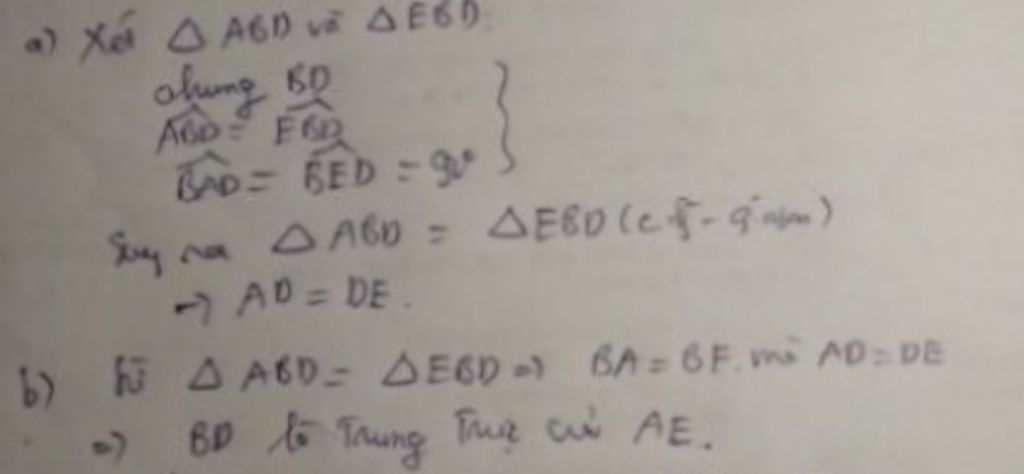 a) Xét △ ABD và △ EBD.
chung BD
\widehat{ABD} = \widehat{EBD}
\widehat{BAD} = \widehat{BED} = 90°
Suy ra △ ABD = △ EBD (
→ AD = DE.
b) từ △ ABD = △ EBD ⇒ BA = BE. mà AD = DE
⇒ BD là Trung Trực của AE.